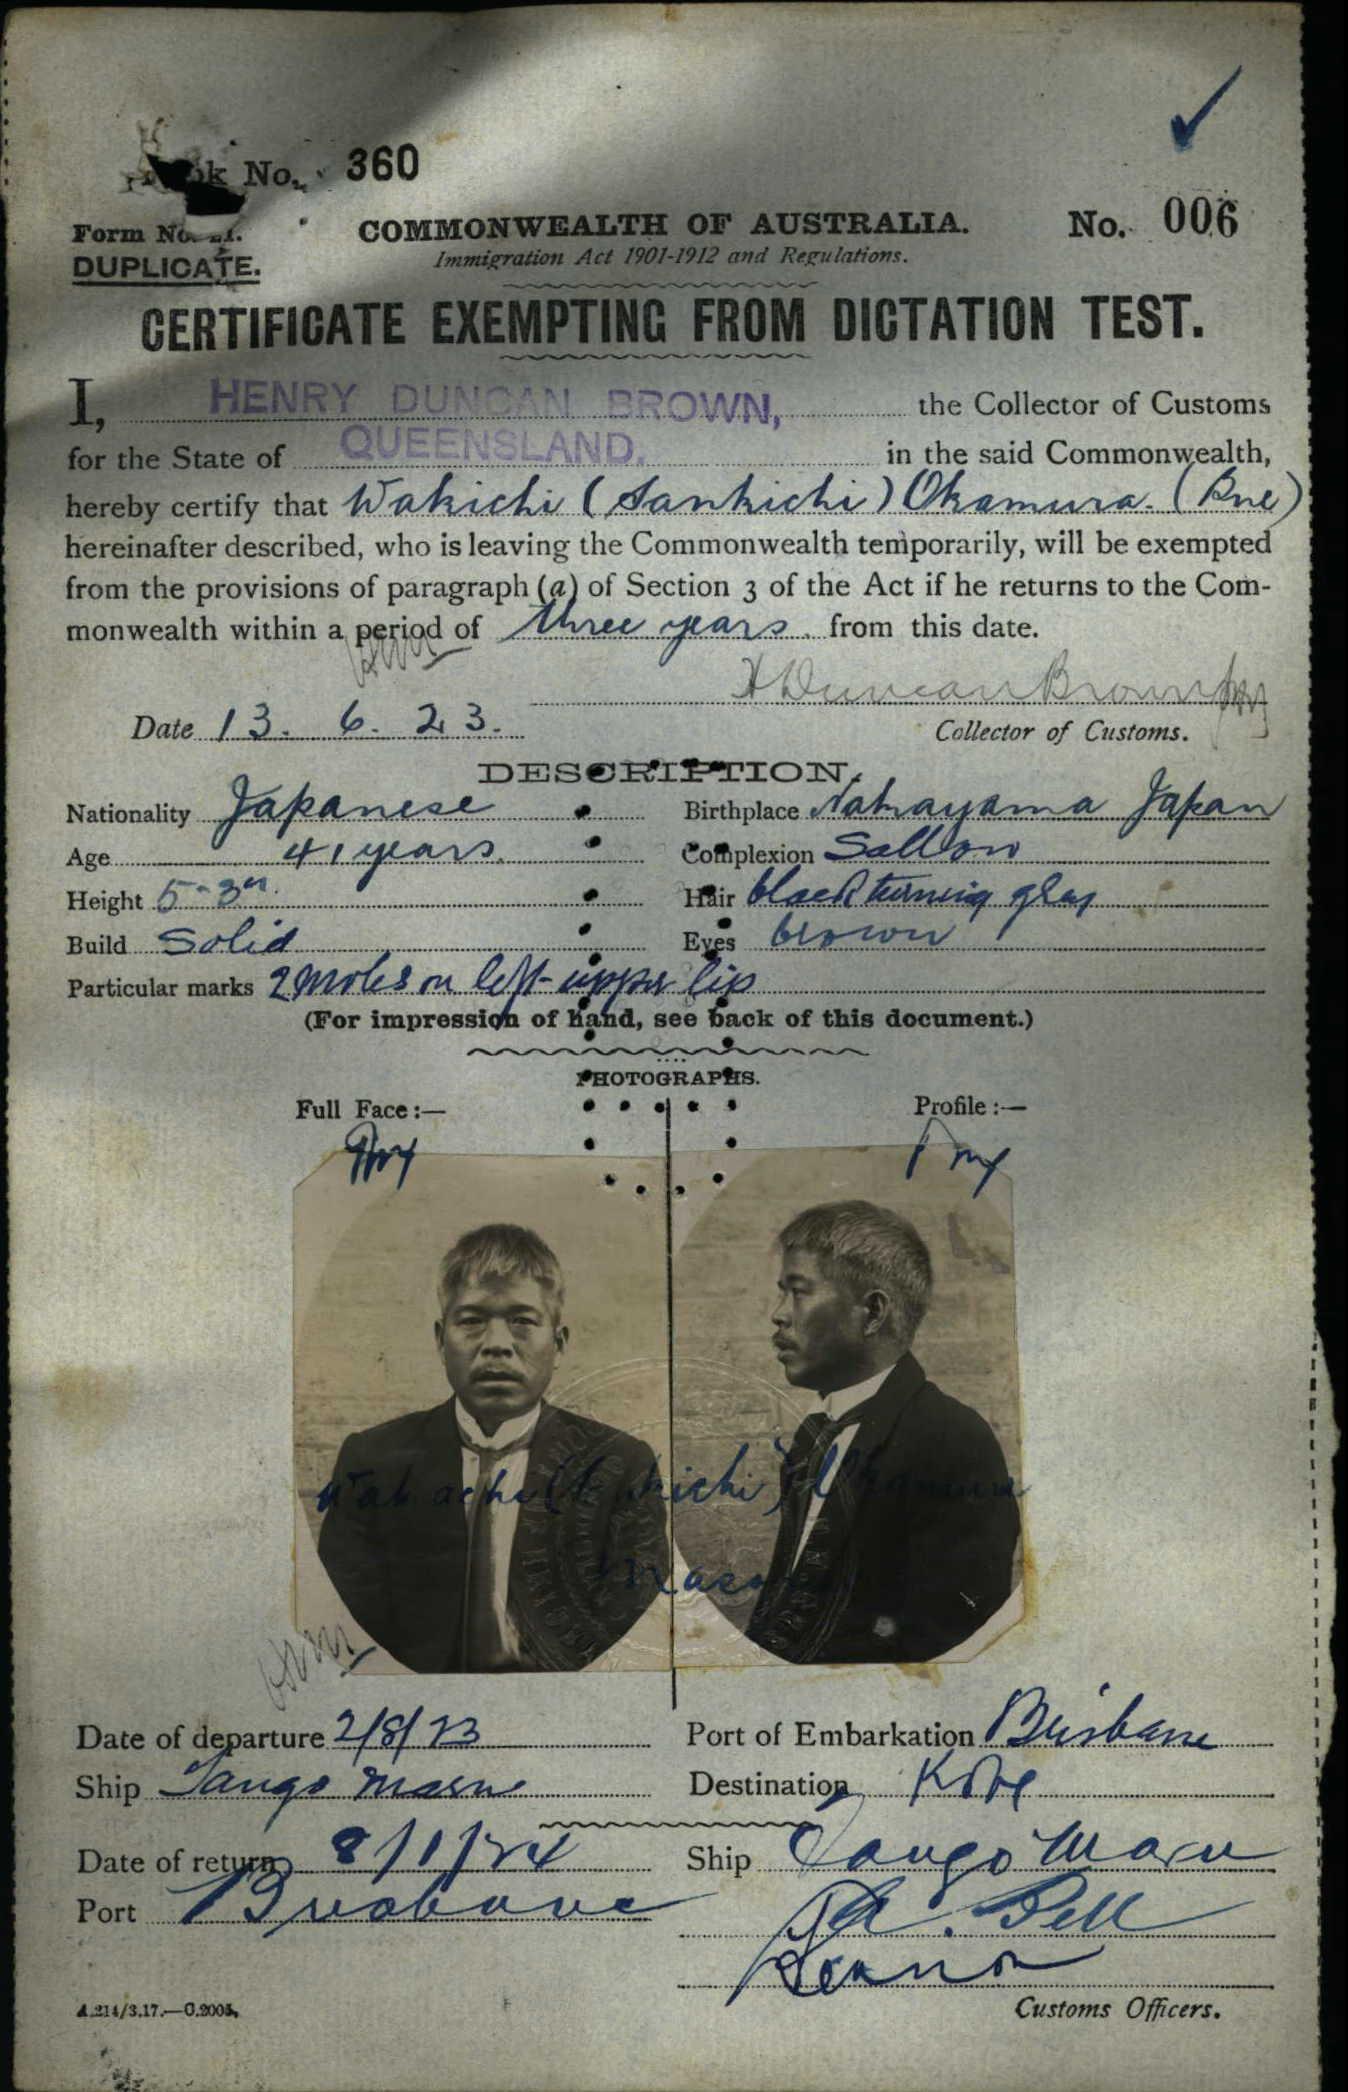 No. 360
Form No.
COMMONWEALTH OF AUSTRALIA.
No. 006
DUPLICATE.
Immigration Act 1901-1912 and Regulations.
CERTIFICATE EXEMPTING FROM DICTATION TEST.
I, HENRY DUNCAN BROWN, the Collector of Customs
for the State of QUEENSLAND. in the said Commonwealth,
hereby certify that Wakichi (Sankichi) Okamura. (Bne)
hereinafter described, who is leaving the Commonwealth temporarily, will be exempted
from the provisions of paragraph (a) of Section 3 of the Act if he returns to the Com-
monwealth within a period of three years from this date.
H Duncan Brown
Date 13. 6. 23.
Collector of Customs.
DESCRIPTION.
Nationality Japanese
Birthplace Nakayama Japan
Age 41 years.
Complexion Sallow
Height 5-3
Hair black turning gray
Build Solid
Eyes brown
Particular marks 2 moles on left upper lip
(For impression of hand, see back of this document.)
PHOTOGRAPHS.
Full Face:—
Profile:—
Okamura
Date of departure 2/8/23
Port of Embarkation Brisbane
Ship Tango Maru
Destination Kobe
Date of return 8/1/24
Ship Tango Maru
Port Brisbane
A. Bell
Customs Officers.
A.214/3.17.—C.2005.